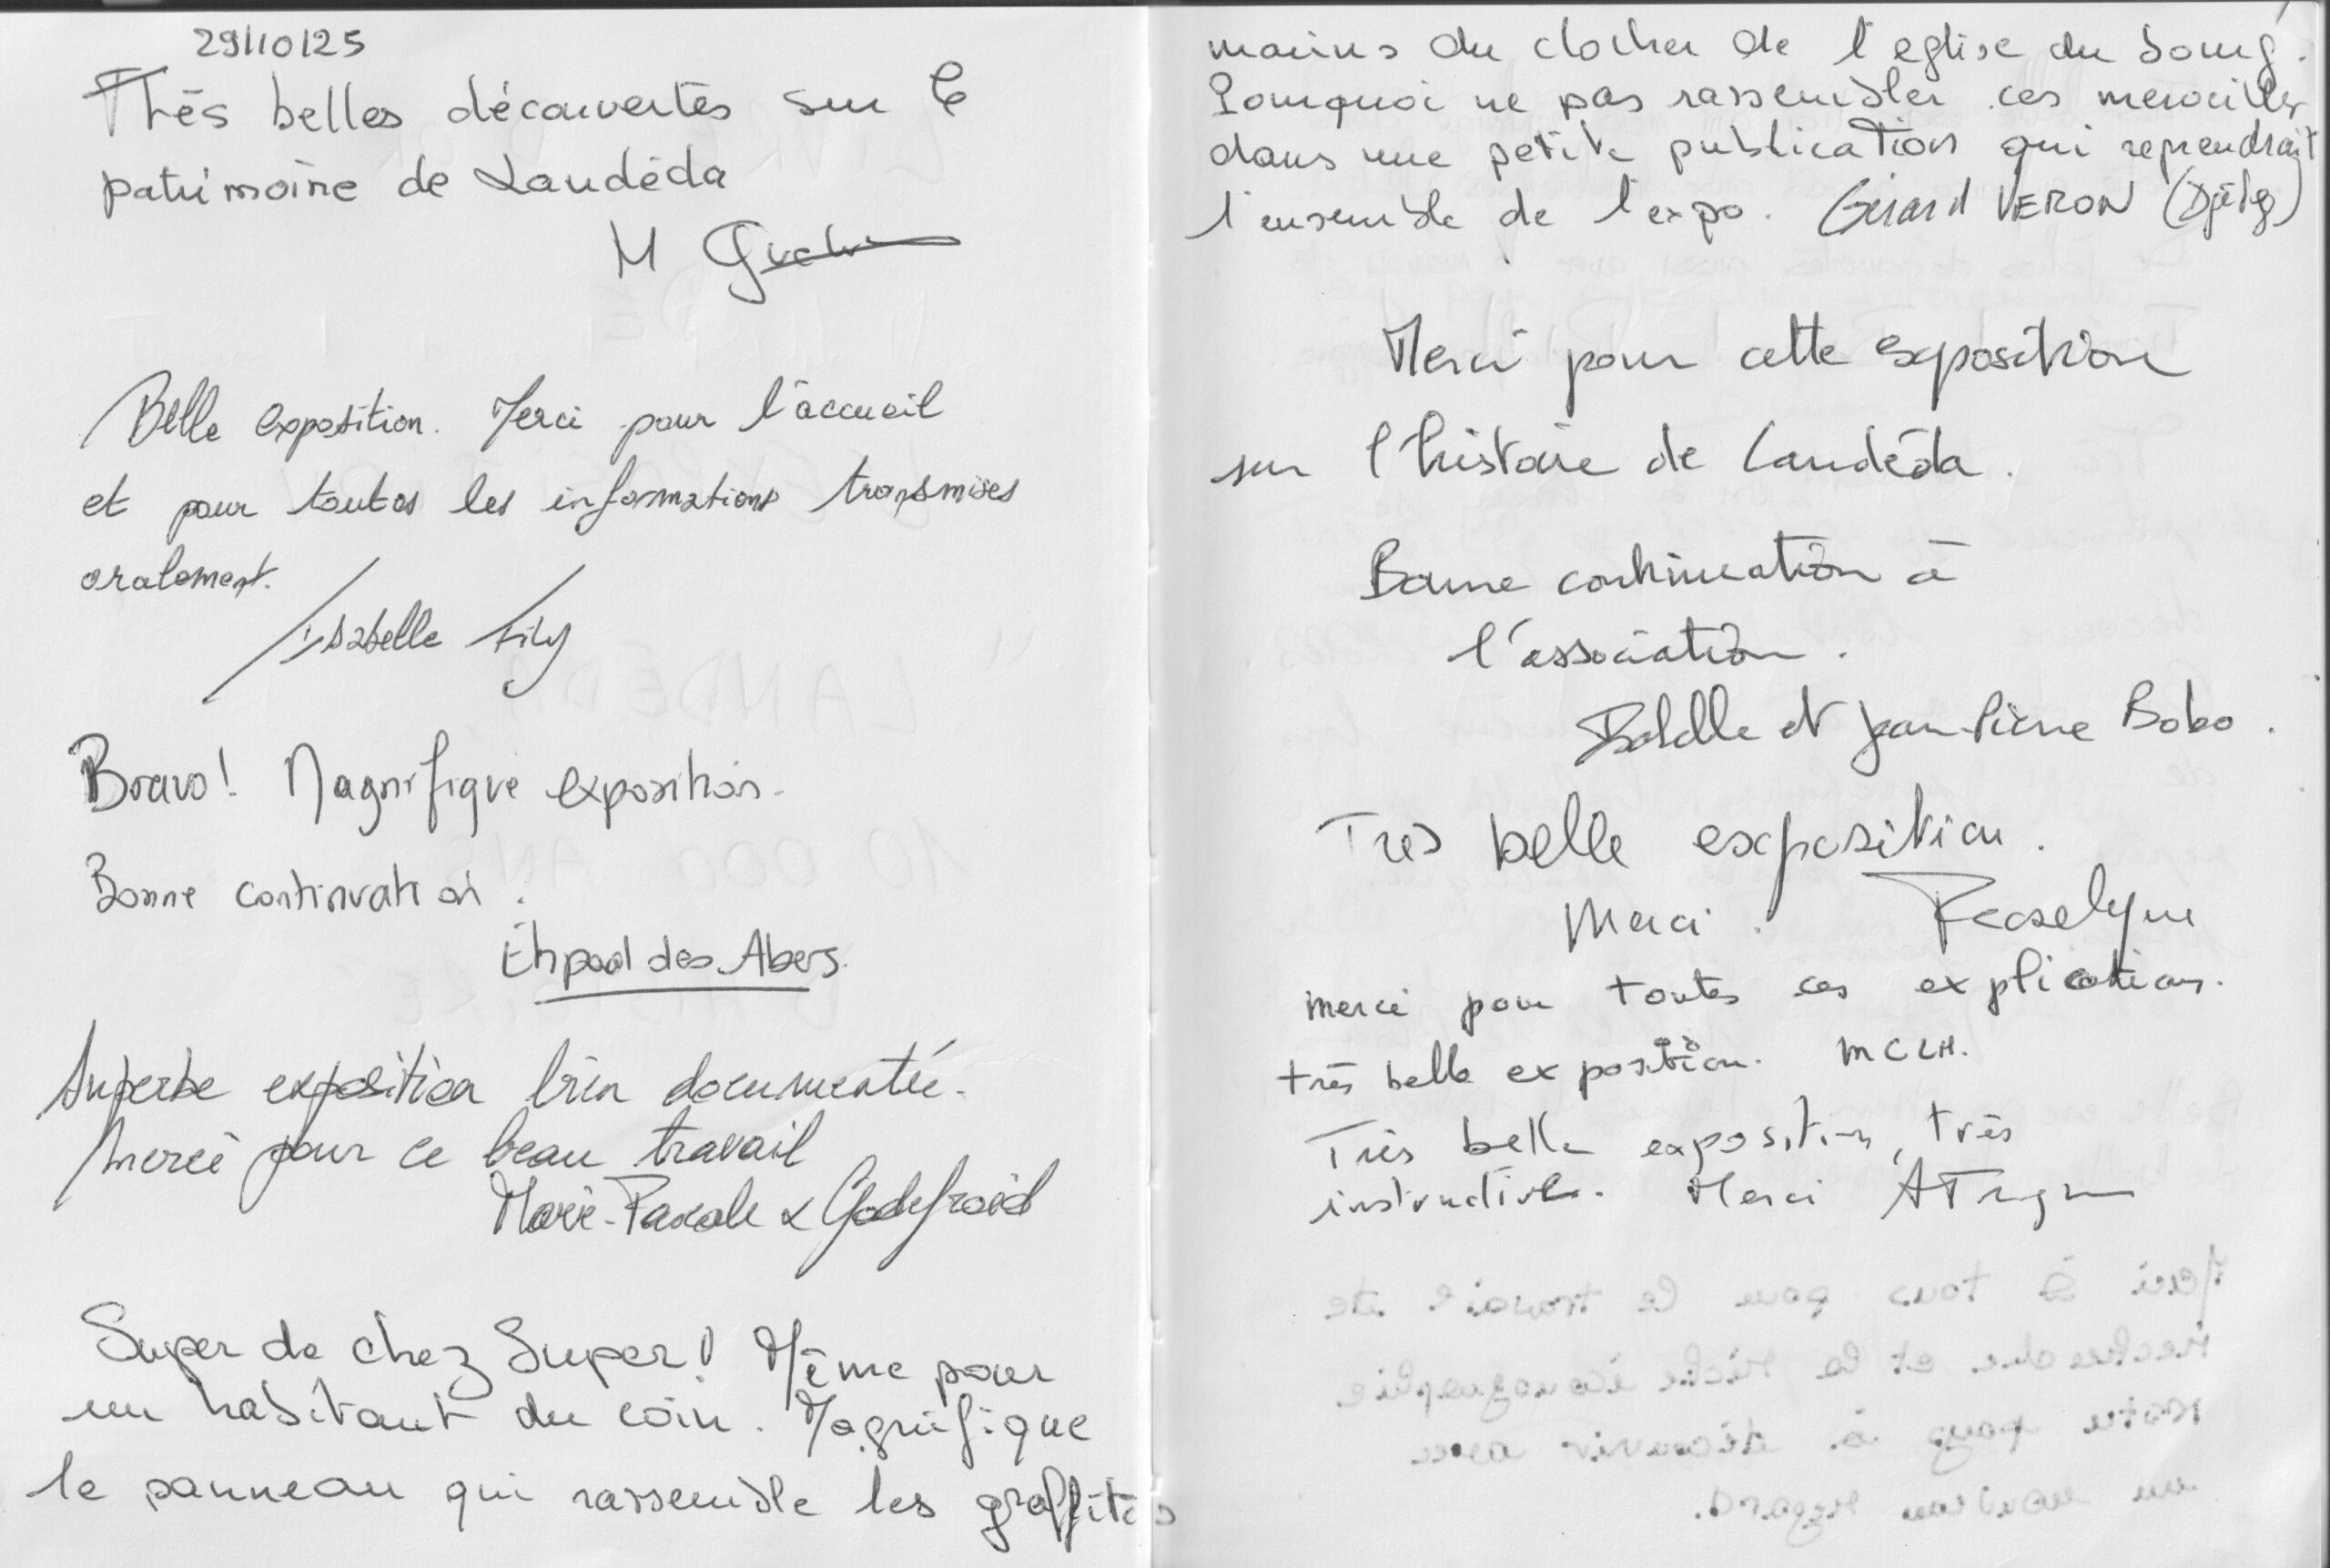 29/10/25
Très belles découvertes sur le
patrimoine de Landéda
M
Belle exposition. Merci pour l'accueil
et pour toutes les informations transmises
oralement.
Isabelle Lily
Bravo! Magnifique exposition.
Bonne continuation.
Ehpad des Abers.
Superbe exposition bien documentée.
Merci pour ce beau travail
Marie-Pascale & Godefroid
Super de chez Super! Même pour
un habitant du coin. Magnifique
le panneau qui rassemble les graffitis
marins du clocher de l'eglise du bourg.
Pourquoi ne pas rassembler ces merveilles
dans une petite publication qui reprendrait
l'ensemble de l'expo. Gérard VERON
Merci pour cette exposition
sur l'histoire de Landéda.
Bonne continuation à
l'association.
et Jean-Pierre Bobo.
Très belle exposition.
Merci.
merci pour toutes ces explications.
très belle exposition. MCLH.
Très belle exposition, très
instructive. Merci
Merci à tous pour le travail de
recherche et la riche iconographie
notre pays à découvrir avec
un nouveau regard.